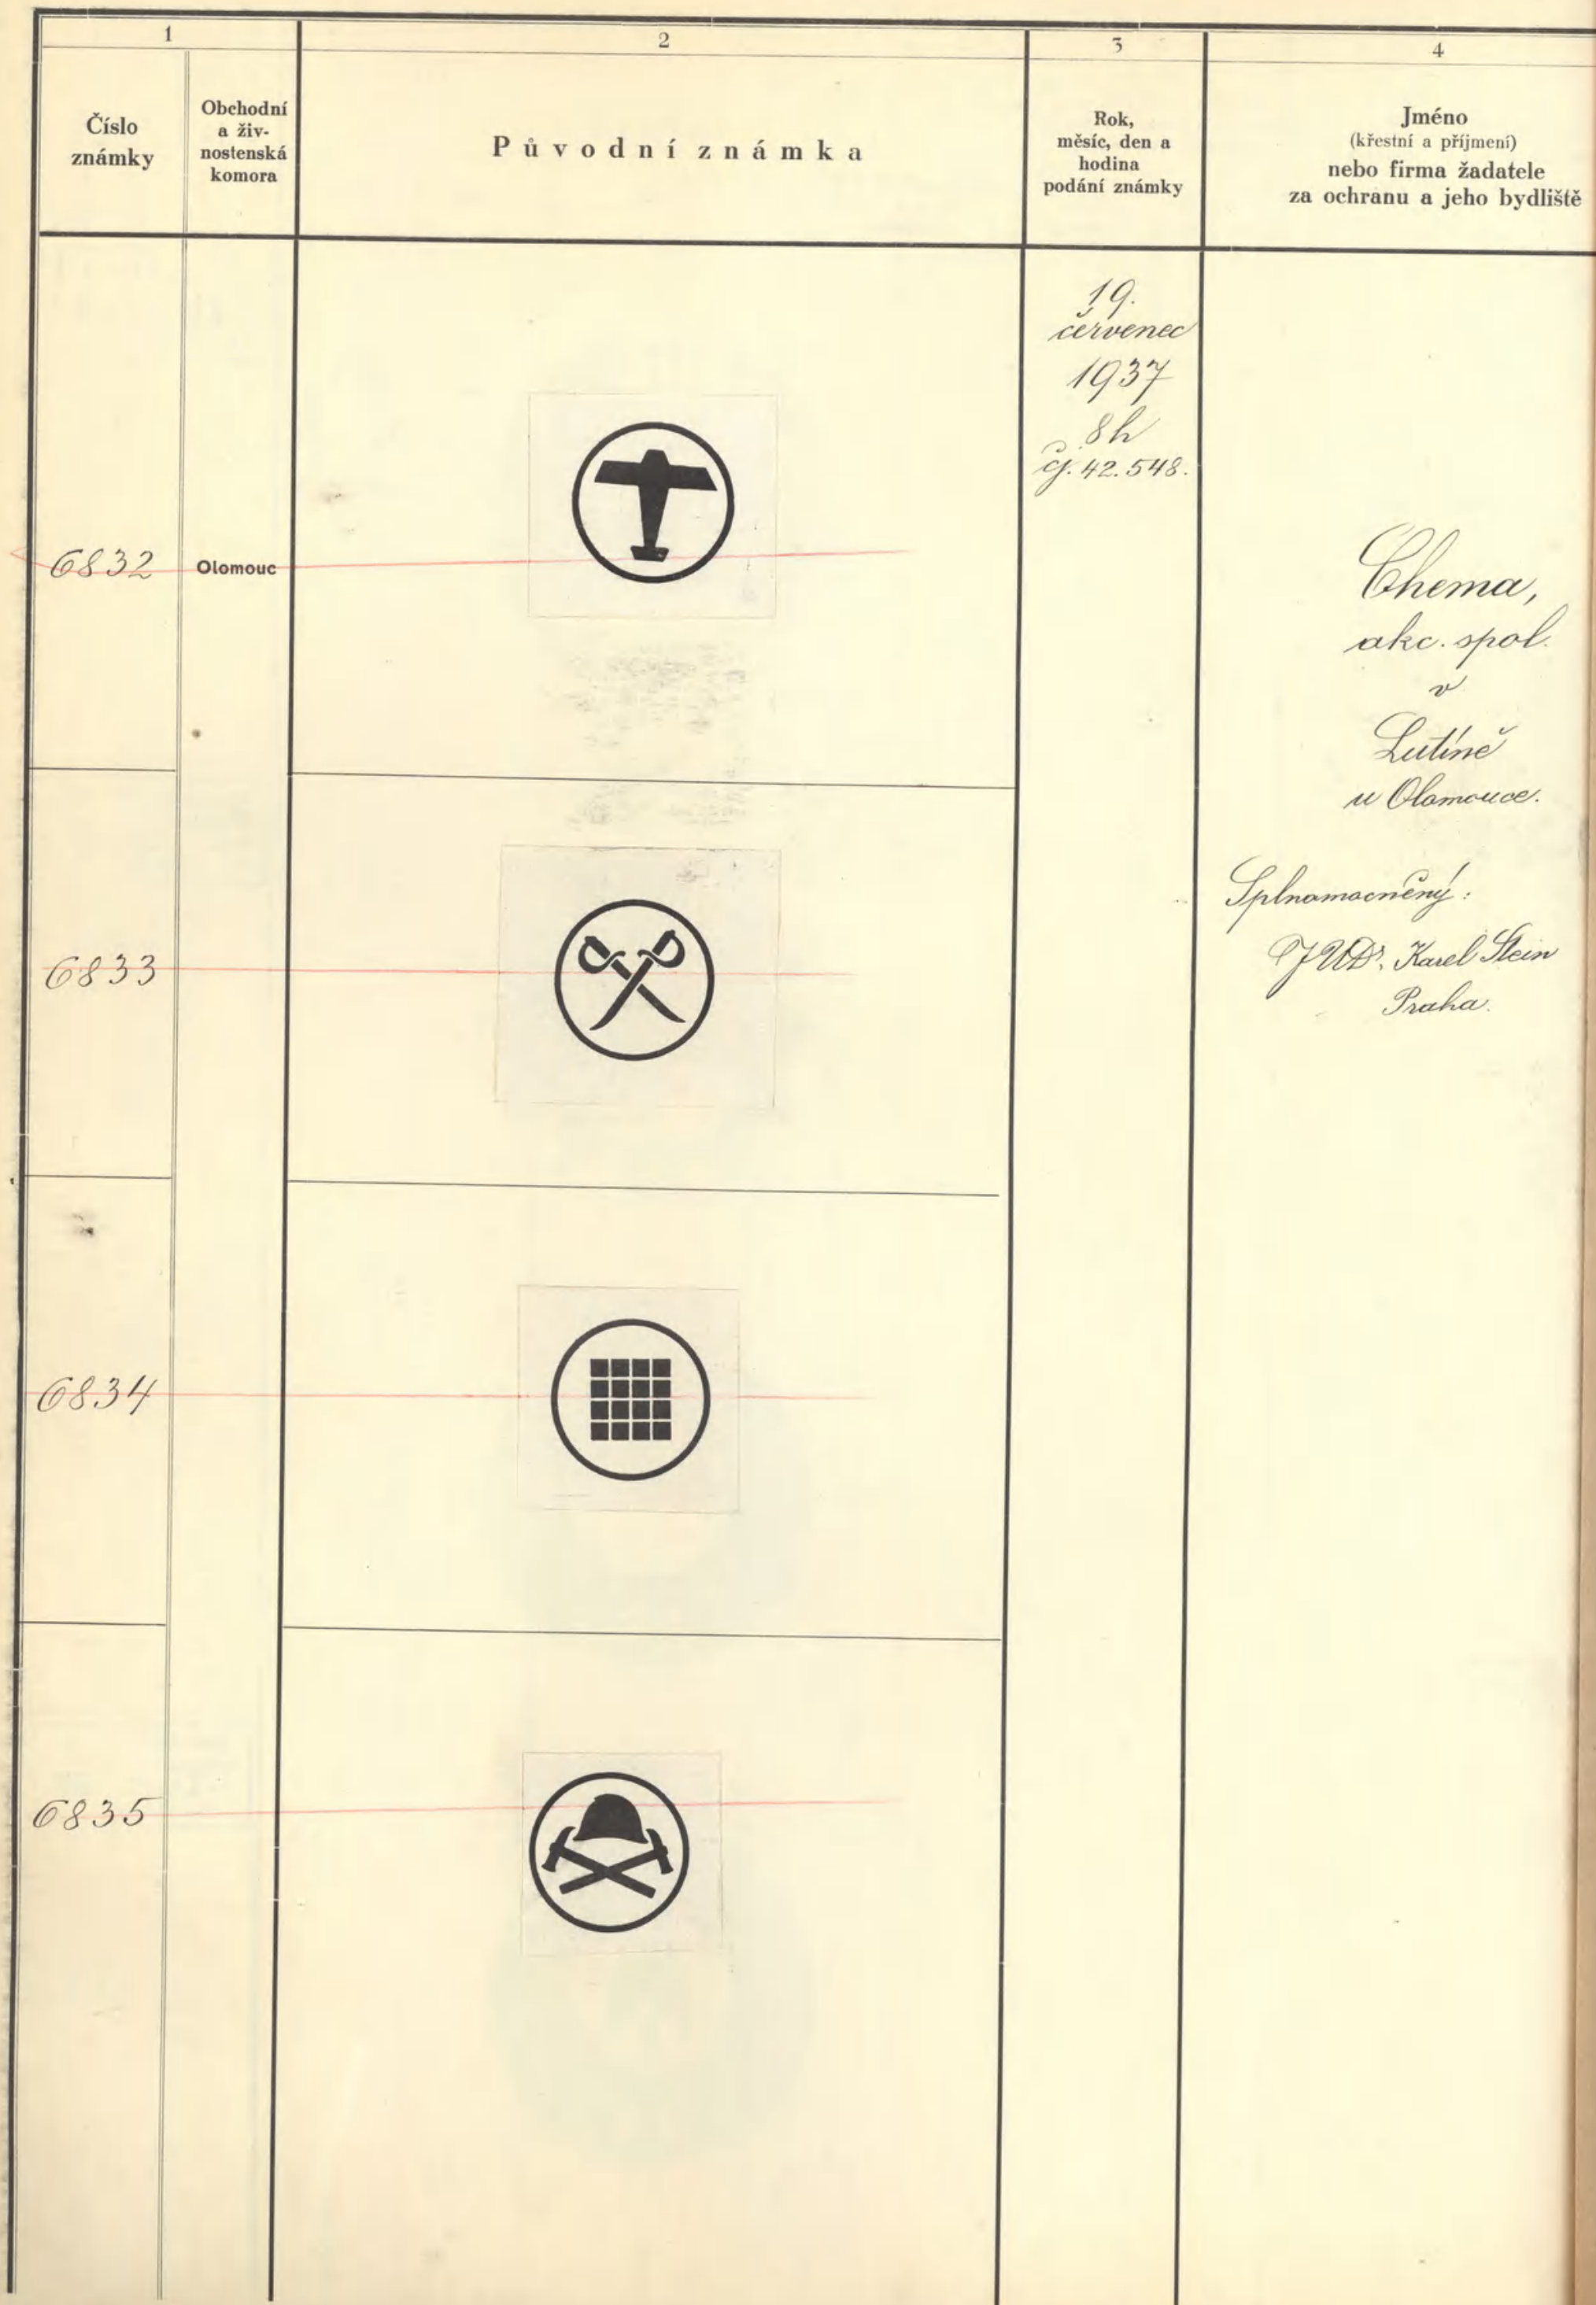 1
2
3
4
Číslo
známky
Obchodní
a živ-
nostenská
komora
Původní známka
Rok,
měsíc, den a
hodina
podání známky
Jméno
(křestní a příjmení)
nebo firma žadatele
za ochranu a jeho bydliště
19.
červenec
1937
8h
čj. 42.548.
6832
Olomouc
Chema,
akc. spol.
v
Lutíně
u Olomouce.
Splnomocněný:
JUDr. Karel Stein
Praha.
6833
6834
6835